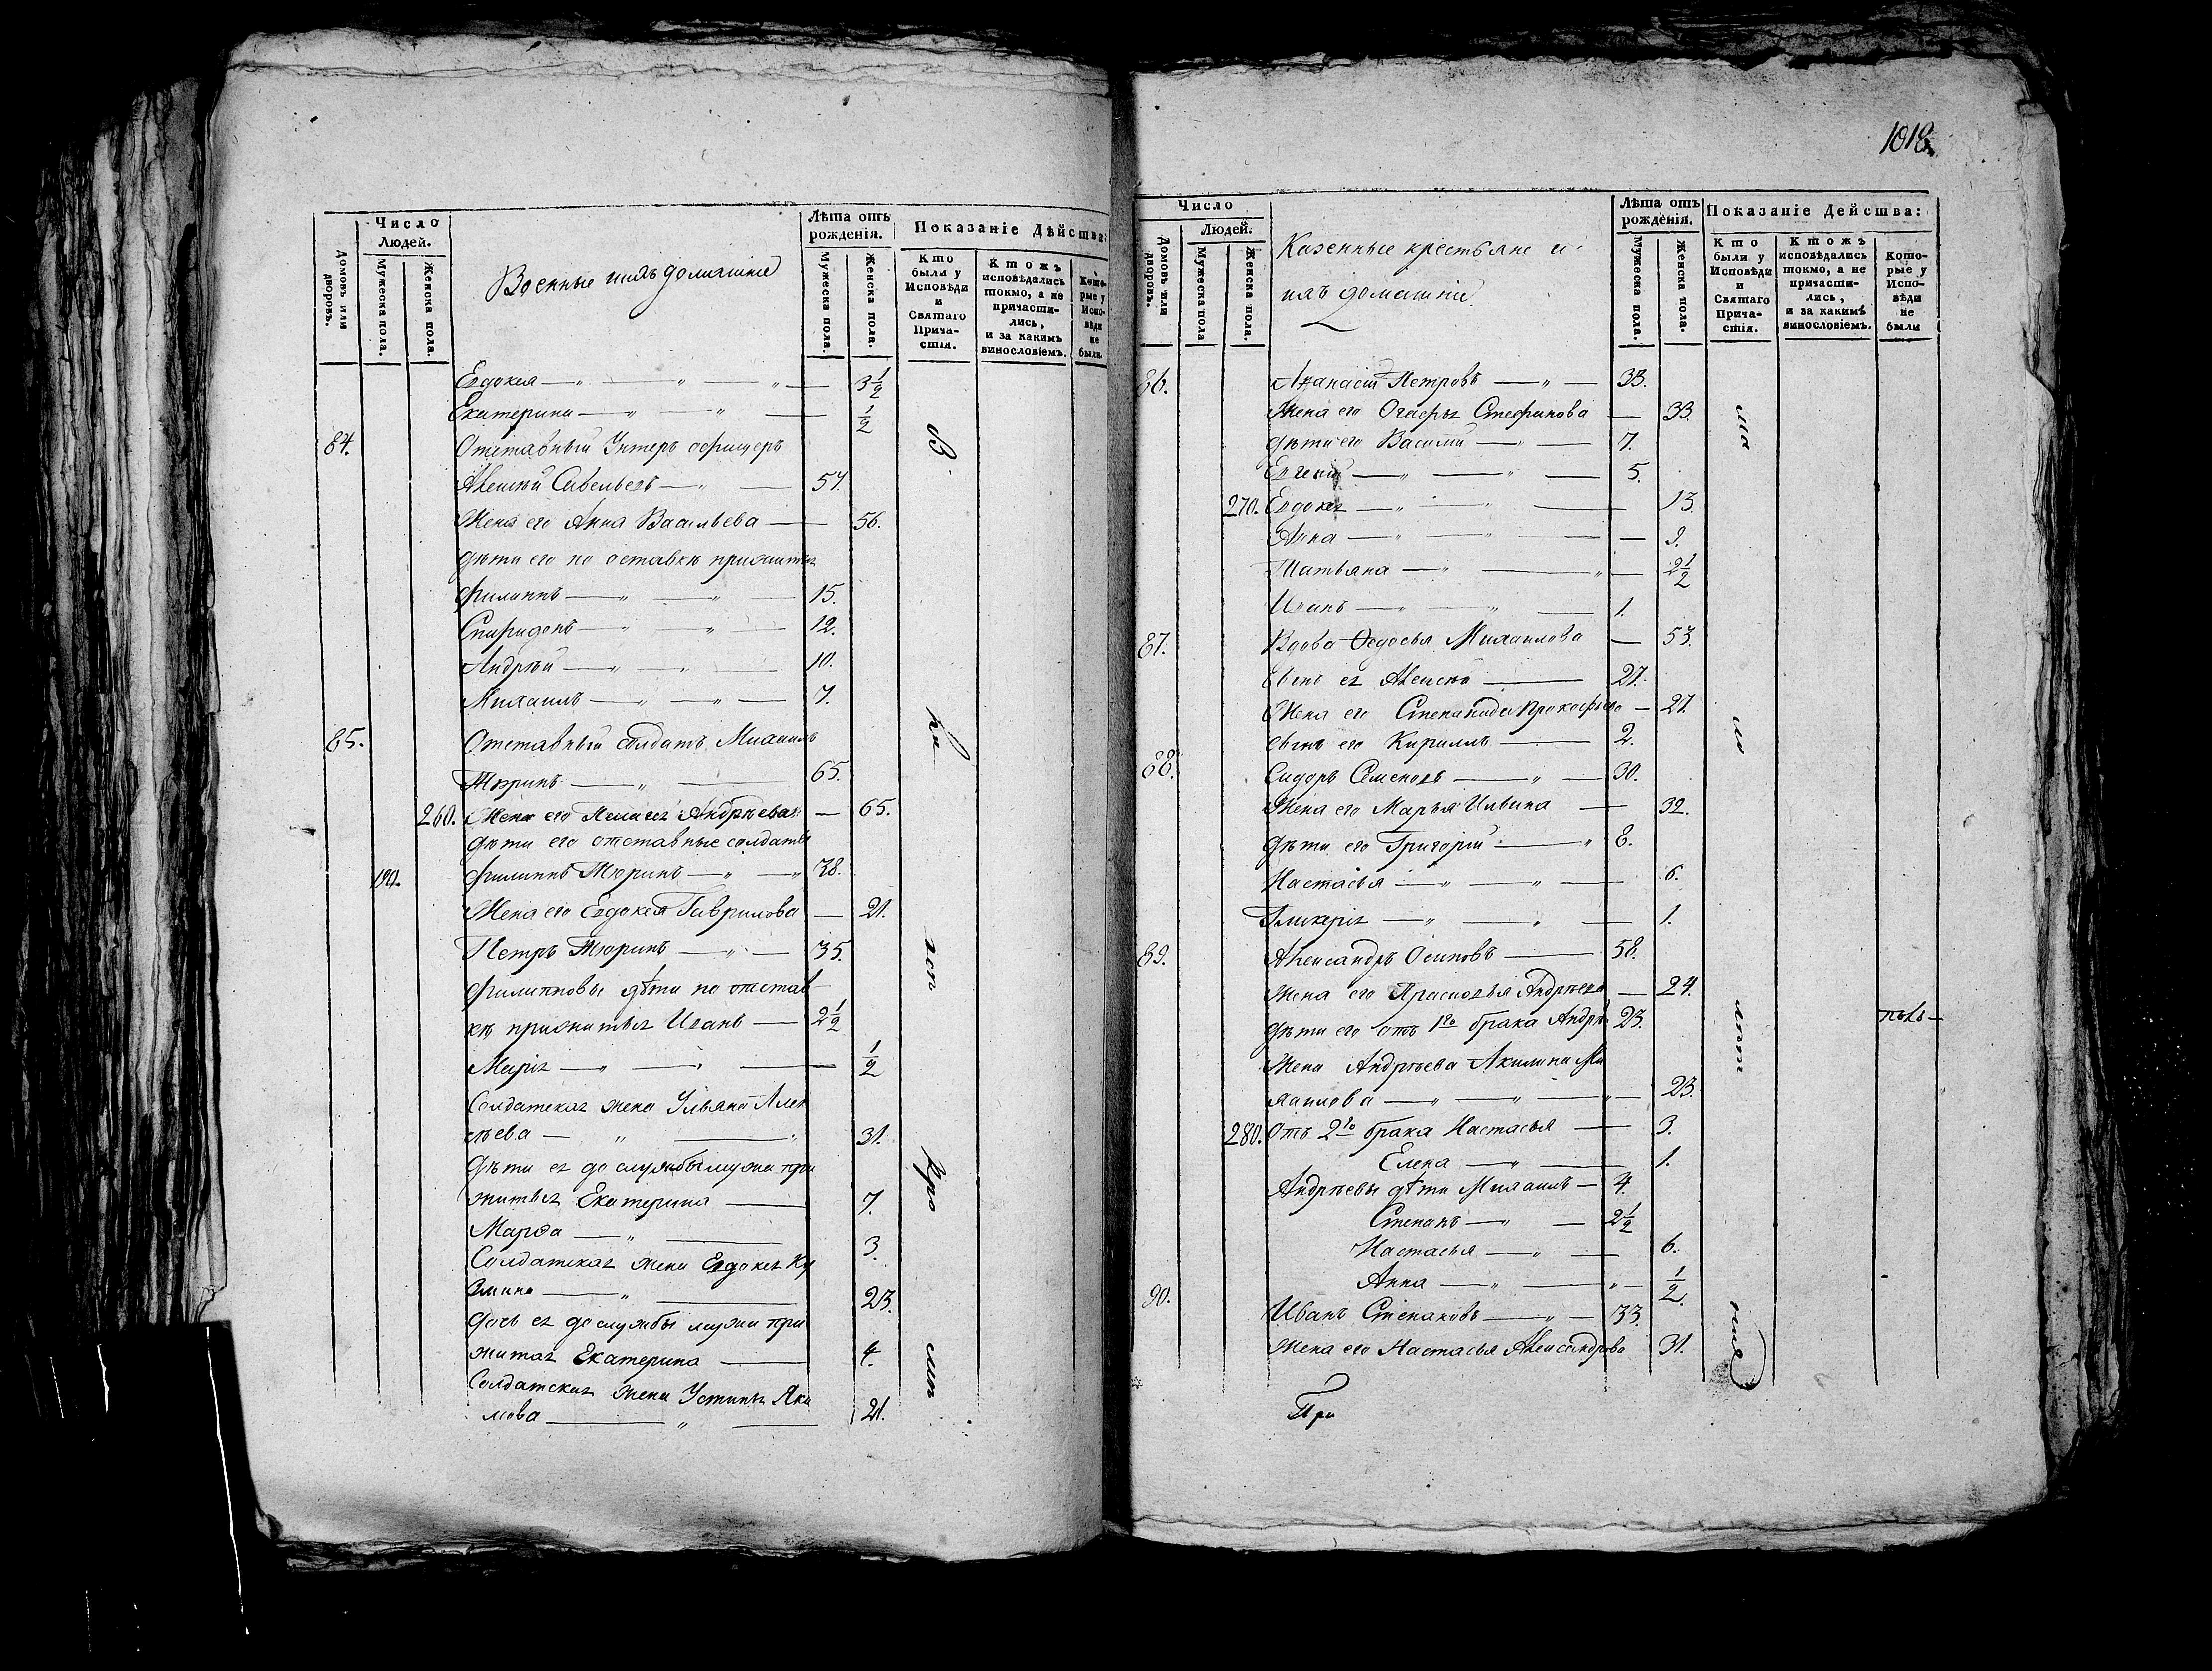 Число
Людей.
Домовъ или дворовъ.
Мужеска пола.
Женска пола.
Военные и ихъ домашніе
Лѣта отъ рожденія.
Мужеска пола.
Женска пола.
Показаніе Дѣйства:
Кто были у Исповѣди и Святаго Причастія.
Ктожъ исповѣдались токмо, а не причастились, и за какимъ винословіемъ.
Которые у Исповѣди не были.
Евдокея — „ — „ — „ — 3½
Екатерина — „ — „ — ½
84. Отставный Унтеръ офицеръ
Алексѣй Савельевъ — „ — 57.
Жена его Анна Васильева — 56.
дѣти его по отставкѣ прижитыя
Филиппъ — „ — „ — 15.
Спиридонъ — „ — „ — 12.
Андрѣй — „ — „ — 10.
Михаилъ — „ — „ — 7.
85. Отставный солдатъ Михаилъ
Тюринъ — „ — 65.
260. Жена его Андрѣева — 65.
дѣти его отставные солдаты
Филиппъ Тюринъ — „ — „ 38.
Жена его Евдокея Гаврилова — 21.
Петръ Тюринъ — „ — 35.
Филипповы дѣти по отстав
кѣ прижитыя Иванъ — 2½
Марія — „ — „ — ½
Солдатская жена Ульяна Алек
сѣева — „ — „ 31.
Дѣти ея до службы мужа при
житыя Екатерина — 7.
Марѳа — „ — 3.
Солдатская жена Евдокея Ку
змина — „ — 23.
дочь ея до службы мужа при
житая Екатерина — 4.
Солдатская жена Устинья Яки
мова — „ — 21.
1018.
Число
Людей.
Домовъ или дворовъ.
Мужеска пола
Женска пола.
Казенные крестьяне и
ихъ домашніе
Лѣта отъ рожденія.
Мужеска пола.
Женска пола.
Показаніе Дейсшва:
Кто были у Исповѣди и Святаго Причастія.
Ктожъ исповѣдались токмо, а не причастились, и за какимъ винословіемъ.
Которые у Исповѣди не были
86. Аѳанасій Петровъ — „ — 33.
Жена его Стефанова — 33.
дѣти его Василій — „ — 7.
Евгеній — „ — „ — 5.
270. Евдокея — „ — „ — 13.
Анна — „ — „ — 9.
Татьяна — „ — „ — 2½
Иванъ — „ — „ — 1.
87. Вдова Ѳедосья Михаилова — 53.
Сынъ ея Алексѣй — 27.
Жена его Степанида Прокофьева — 27.
сынъ его Кириллъ — 2.
88. Сидоръ Семеновъ — „ — 30.
Жена его Марья Ильина — 32.
дѣти его Григорій — „ 8.
Настасья — „ — „ — 6.
Гликерія — „ — „ — 1.
89. Александръ Осиповъ — 58.
Жена его Прасковья Андрѣева — 24.
дѣти его отъ 1го брака Андрѣй 23.
Жена Андрѣева Акилина Ми
хаилова — „ — „ — „ — 23.
280. Отъ 2го брака Настасья — 3.
Елена — „ — 1.
Андрѣевы дѣти Михаилъ — 4.
Степанъ — „ — 2½
Настасья — „ — 6.
Анна — „ — „ — ½
90. Иванъ Степановъ — „ — 33.
Жена его Настасья Александрова 31.
При